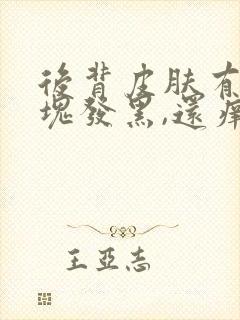 後背皮肤有
塊發黑,還痒
王亞志